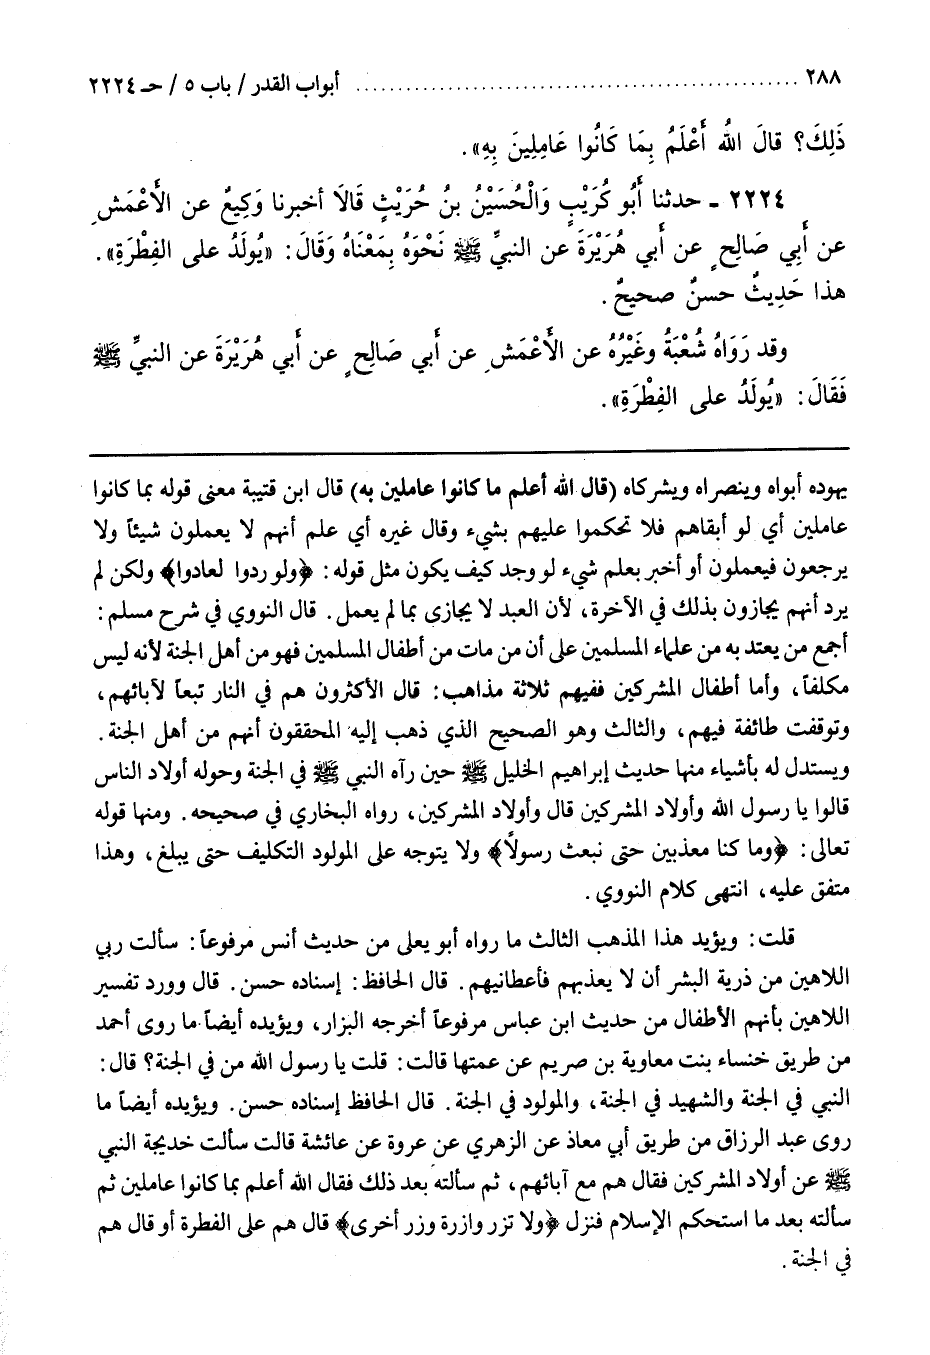 ٢٨٨ ..................................................... أبواب القدر / باب ٥ / حـ ٢٢٢٤
ذَلِكَ؟ قالَ اللهُ أَعْلَمُ بِمَا كَانُوا عَامِلِينَ بِهِ».
٢٢٢٤ ـ حدثنا أَبُو كُرَيْبٍ وَالْحُسَيْنُ بنُ حُرَيْثٍ قَالَا أخبرنا وَكِيعٌ عن الأَعْمَشِ
عن أَبِي صَالِحٍ عن أَبي هُرَيْرَةَ عن النبيِّ ﷺ نَحْوَهُ بِمَعْنَاهُ وَقَالَ: «يُولَدُ على الفِطْرَةِ».
هذا حَدِيثٌ حسنٌ صحيحٌ.
وقد رَوَاهُ شُعْبَةُ وغَيْرُهُ عن الأَعْمَشِ عن أَبي صَالِحٍ عن أَبي هُرَيْرَةَ عن النبيِّ ﷺ
فَقَالَ: «يُولَدُ على الفِطْرَةِ».
يهوده أبواه وينصراه ويشركاه (قال الله أعلم ما كانوا عاملين به) قال ابن قتيبة معنى قوله بما كانوا
عاملين أي لو أبقاهم فلا تحكموا عليهم بشيء وقال غيره أي علم أنهم لا يعملون شيئاً ولا
يرجعون فيعملون أو أخبر بعلم شيء لو وجد كيف يكون مثل قوله: ﴿ولو ردوا لعادوا﴾ ولكن لم
يرد أنهم يجازون بذلك في الآخرة، لأن العبد لا يجازى بما لم يعمل. قال النووي في شرح مسلم:
أجمع من يعتد به من علماء المسلمين على أن من مات من أطفال المسلمين فهو من أهل الجنة لأنه ليس
مكلفاً، وأما أطفال المشركين ففيهم ثلاثة مذاهب: قال الأكثرون هم في النار تبعاً لآبائهم،
وتوقفت طائفة فيهم، والثالث وهو الصحيح الذي ذهب إليه المحققون أنهم من أهل الجنة.
ويستدل له بأشياء منها حديث إبراهيم الخليل ﷺ حين رآه النبي ﷺ في الجنة وحوله أولاد الناس
قالوا يا رسول الله وأولاد المشركين قال وأولاد المشركين، رواه البخاري في صحيحه. ومنها قوله
تعالى: ﴿وما كنا معذبين حتى نبعث رسولاً﴾ ولا يتوجه على المولود التكليف حتى يبلغ، وهذا
متفق عليه، انتهى كلام النووي.
قلت: ويؤيد هذا المذهب الثالث ما رواه أبو يعلى من حديث أنس مرفوعاً: سألت ربي
اللاهين من ذرية البشر أن لا يعذبهم فأعطانيهم. قال الحافظ: إسناده حسن. قال وورد تفسير
اللاهين بأنهم الأطفال من حديث ابن عباس مرفوعاً أخرجه البزار، ويؤيده أيضاً ما روى أحمد
من طريق خنساء بنت معاوية بن صريم عن عمتها قالت: قلت يا رسول الله من في الجنة؟ قال:
النبي في الجنة والشهيد في الجنة، والمولود في الجنة. قال الحافظ إسناده حسن. ويؤيده أيضاً ما
روى عبد الرزاق من طريق أبي معاذ عن الزهري عن عروة عن عائشة قالت سألت خديجة النبي
ﷺ عن أولاد المشركين فقال هم مع آبائهم، ثم سألته بعد ذلك فقال الله أعلم بما كانوا عاملين ثم
سألته بعد ما استحكم الإسلام فنزل ﴿ولا تزر وازرة وزر أخرى﴾ قال هم على الفطرة أو قال هم
في الجنة.